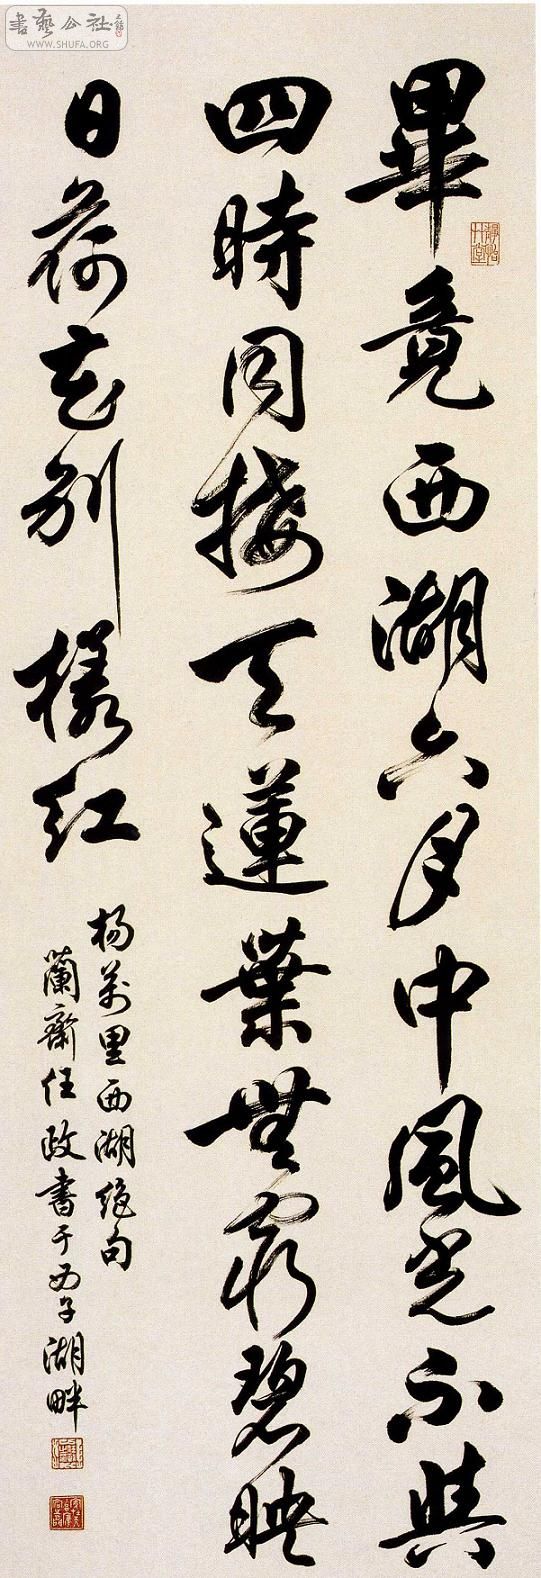 書藝公社
WWW.SHUFA.ORG
畢竟西湖六月中風光不與
四時同接天蓮葉無窮碧映
日荷花別樣紅
杨萬里西湖絕句
蘭齋任政書于西子湖畔